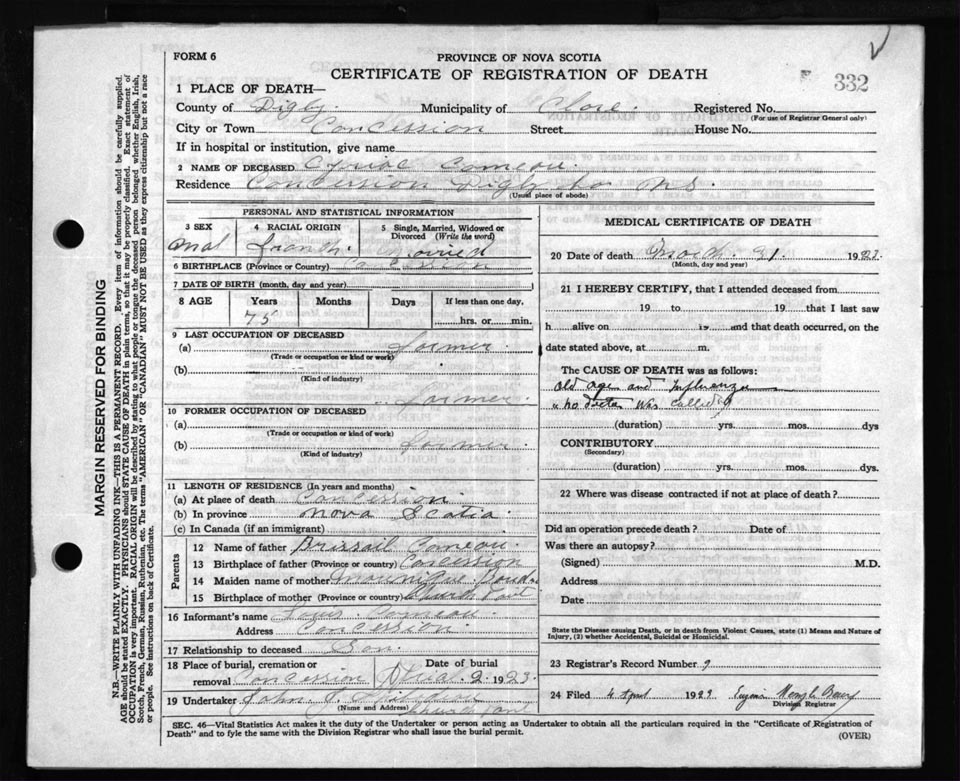 FORM 6
PROVINCE OF NOVA SCOTIA
CERTIFICATE OF REGISTRATION OF DEATH
332
1 PLACE OF DEATH—
County of Digby. Municipality of Clare. Registered No.
(For use of Registrar General only)
City or Town Concession Street House No.
If in hospital or institution, give name
2 NAME OF DECEASED Comeau.
Residence Concession Digby Co N.S.
(Usual place of abode)
PERSONAL AND STATISTICAL INFORMATION
3 SEX
4 RACIAL ORIGIN
5 Single, Married, Widowed or Divorced (Write the word)
Mal French. Married
6 BIRTHPLACE (Province or Country) Concession
7 DATE OF BIRTH (month, day and year)
8 AGE Years Months Days If less than one day,
75 hrs. or min.
9 LAST OCCUPATION OF DECEASED
(a) Farmer
(Trade or occupation or kind or work)
(b)
(Kind of industry)
Farmer.
10 FORMER OCCUPATION OF DECEASED
(a)
(Trade or occupation or kind or work)
(b) Farmer
(Kind of industry)
11 LENGTH OF RESIDENCE (In years and months)
(a) At place of death Concession
(b) In province Nova Scotia
(c) In Canada (if an immigrant)
Parents
12 Name of father Comeau.
13 Birthplace of father (Province or Country) Concession
14 Maiden name of mother
15 Birthplace of mother (Province or country) Church Point
16 Informant's name Comeau
Address Concession
17 Relationship to deceased Son.
18 Place of burial, cremation or removal Concession
Date of burial 2. 1923.
19 Undertaker John
(Name and Address) Church Point
MEDICAL CERTIFICATE OF DEATH
20 Date of death March 31. 1923.
(Month, day and year)
21 I HEREBY CERTIFY, that I attended deceased from
19 to 19 that I last saw
h alive on 19 and that death occurred, on the
date stated above, at m.
The CAUSE OF DEATH was as follows:
Old age and Influenza
"no doctor was called"
(duration) yrs. mos. dys
CONTRIBUTORY
(Secondary)
(duration) yrs. mos. dys.
22 Where was disease contracted if not at place of death?
Did an operation precede death? Date of
Was there an autopsy?
(Signed) M.D.
Address
Date
State the Disease causing Death, or in death from Violent Causes, state (1) Means and Nature of
Injury, (2) whether Accidental, Suicidal or Homicidal.
23 Registrar's Record Number 9
24 Filed 4 April 1923
Division Registrar
SEC. 46—Vital Statistics Act makes it the duty of the Undertaker or person acting as Undertaker to obtain all the particulars required in the "Certificate of Registration of
Death" and to fyle the same with the Division Registrar who shall issue the burial permit.
(OVER)
MARGIN RESERVED FOR BINDING
N.B.—WRITE PLAINLY WITH UNFADING INK—THIS IS A PERMANENT RECORD. Every item of information should be carefully supplied.
AGE should be stated EXACTLY. PHYSICIANS should STATE CAUSE OF DEATH in plain terms, so that it may be properly classified. Exact statement of
OCCUPATION is very important. RACIAL ORIGIN will be described by stating to what people or tongue the deceased person belonged whether English, Irish,
Scotch, French, German, Russian, Ruthenian, etc. The terms "AMERICAN" OR "CANADIAN" MUST NOT BE USED as they express citizenship but not a race
or people. See instructions on back of Certificate.